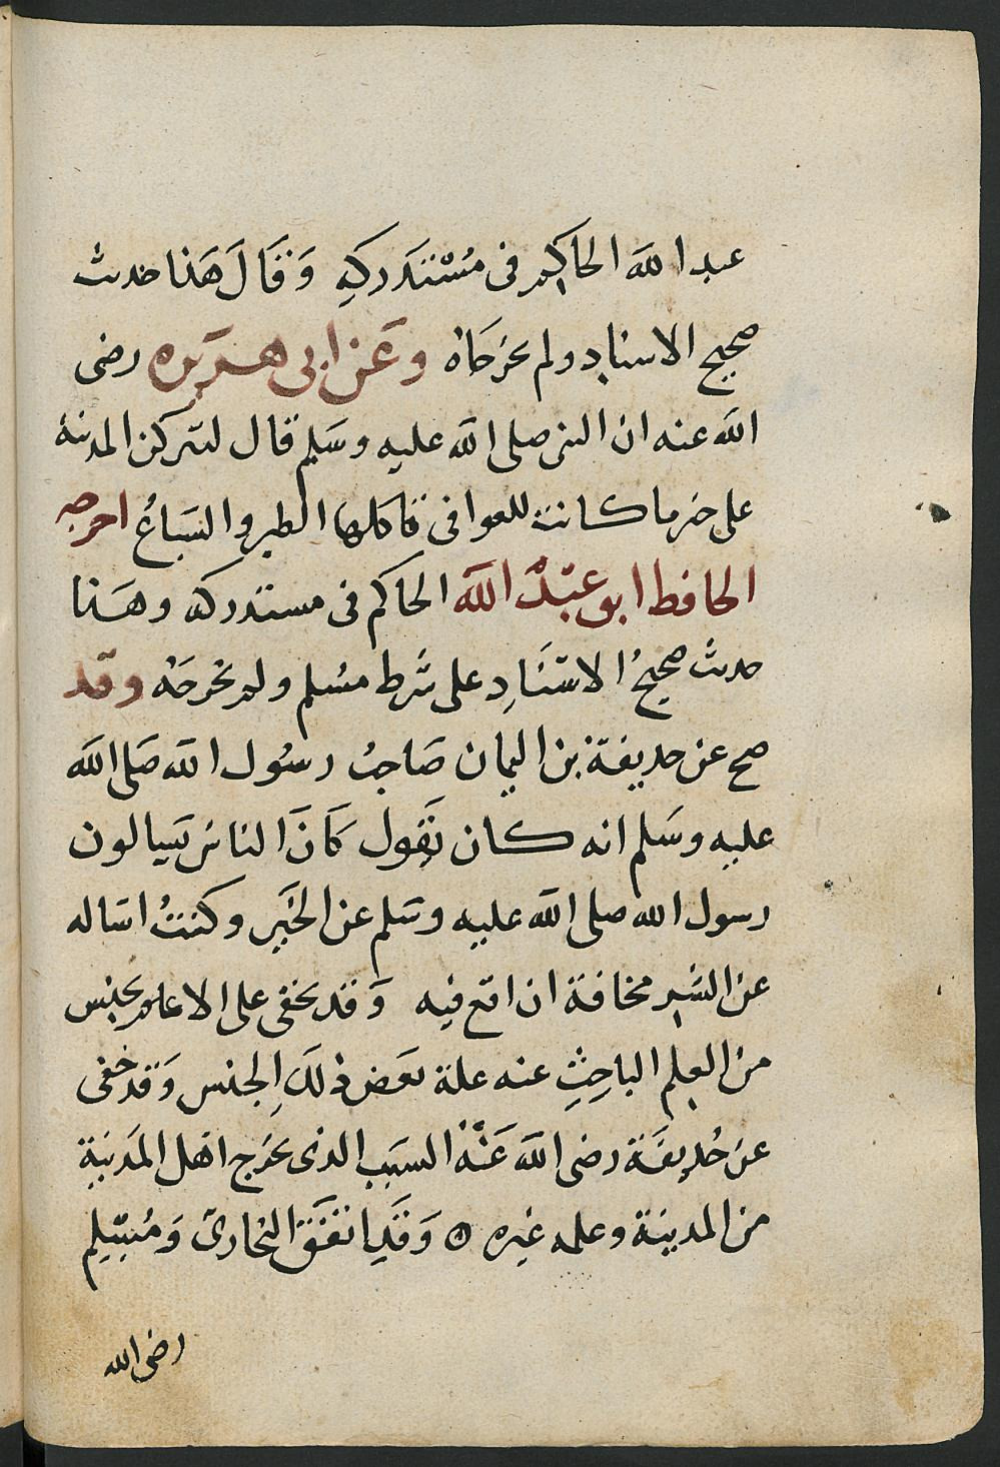 عبد الله الحاكم فى مُسْتَدركِهِ وَقَالَ هَذا حديث
صحيح الاسناد ولم يخرجَاهُ وعَن ابى هريره رضى
الله عنه ان النبى صلى الله عليه وسَلم قال لتتركن المدينة
على خير ما كانت للعوافى تاكلها الطير والسبَاعُ اخرجه
الحافظ ابو عَبْد الله الحاكم فى مستدركه وهَذا
حديث صحيحُ الاسنَادِ على شرط مسُلم ولم يخرجَهُ وقد
صح عن حديفة بن اليمان صَاحبُ رسُول الله صَلى الله
عليه وسَلم انه كان يَقول كَانَ الناسُ يسَالون
رسول الله صلى الله عليه وسَلم عن الخَير وكنتُ اسَاله
عن الشر مخافة ان اقع فيه وَقد يخفى على الاعلم بجنس
من العِلم الباحِثِ عنه علة بعَض ذلكَ الجنس وَقد خفى
عن حُديفَة رضى الله عَنْهُ السبَب الذى يخرج اهل المَدينة
من المدينة وعلمه غيره ه وَقَد اتفَقَ البخارىّ وَمُسْلِم
رضى الله